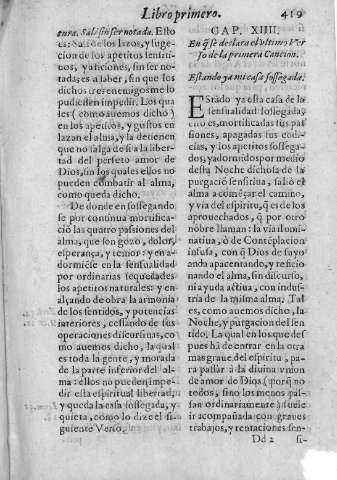 Libro primero. 419
tura. Salí sin ser notada. Esto
es: Salí de los lazos, y suge-
cion de los apetitos sensiti-
uos, y aficiones, sin ser no-
tada; es a saber, sin que los
dichos tres enemigos me lo
pudiessen impedir. Los qua
les (como auemos dicho)
en los apetitos, y gustos en
lazan el alma, y la detienen
que no salga de si a la liber-
tad del perfeto amor de
Dios, sin los quales ellos no
pueden combatir al alma,
como queda dicho.
De donde en sossegando
se por continua mortifica-
ciō las quatro passiones del
alma, que son gozo, dolor,
esperança, y temor: y en a-
dormiēse en la sensualidad
por ordinarias sequedades
los apetitos naturales: y en
alçando de obra la armonia
de los sentidos, y potencias
interiores, cessando de sus
operaciones discursiuas, co
mo auemos dicho, la qual
es toda la gente, y morada
de la parte inferior del al-
ma: ellos no pueden impe-
dir esta espiritual libertad,
y queda la casa sossegada, y
quieta, como lo dize el si-
guiente Verso.
CAP. XIIII.
En q̃ se declara el vltimo Ver
so de la primera Cancion.
Estando ya mi casa sossegada.
EStado ya esta casa de la
sensualidad sossegada,
esto es, mortificadas sus pas
siones, apagadas sus codi-
cias, y los apetitos sossega-
dos, y adormidos por medio
desta Noche dichosa de la
purgació sensitiua, salió el
alma a comēçar el camino,
y via del espiritu, q̃ es de los
aprouechados, q̃ por otro
nōbre llaman: la via ilumi-
natiua, ò de Contēplacion
infusa, con q̃ Dios de suyo
anda apacentando, y reficio
nando el alma, sin discurso,
ni ayuda actiua, con indus-
tria de la misma alma. Tal
es, como auemos dicho, la
Noche, y purgacion del sen
tido. La qual en los que des
pues hā de entrar en la otra
mas graue del espiritu, pa-
ra passar à la diuina vnion
de amor de Dios (porq̃ no
todos, sino los menos pas-
san ordinariamente) suele
ir acompañada con graues
trabajos, y tentaciones sen-
Dd 2 si-